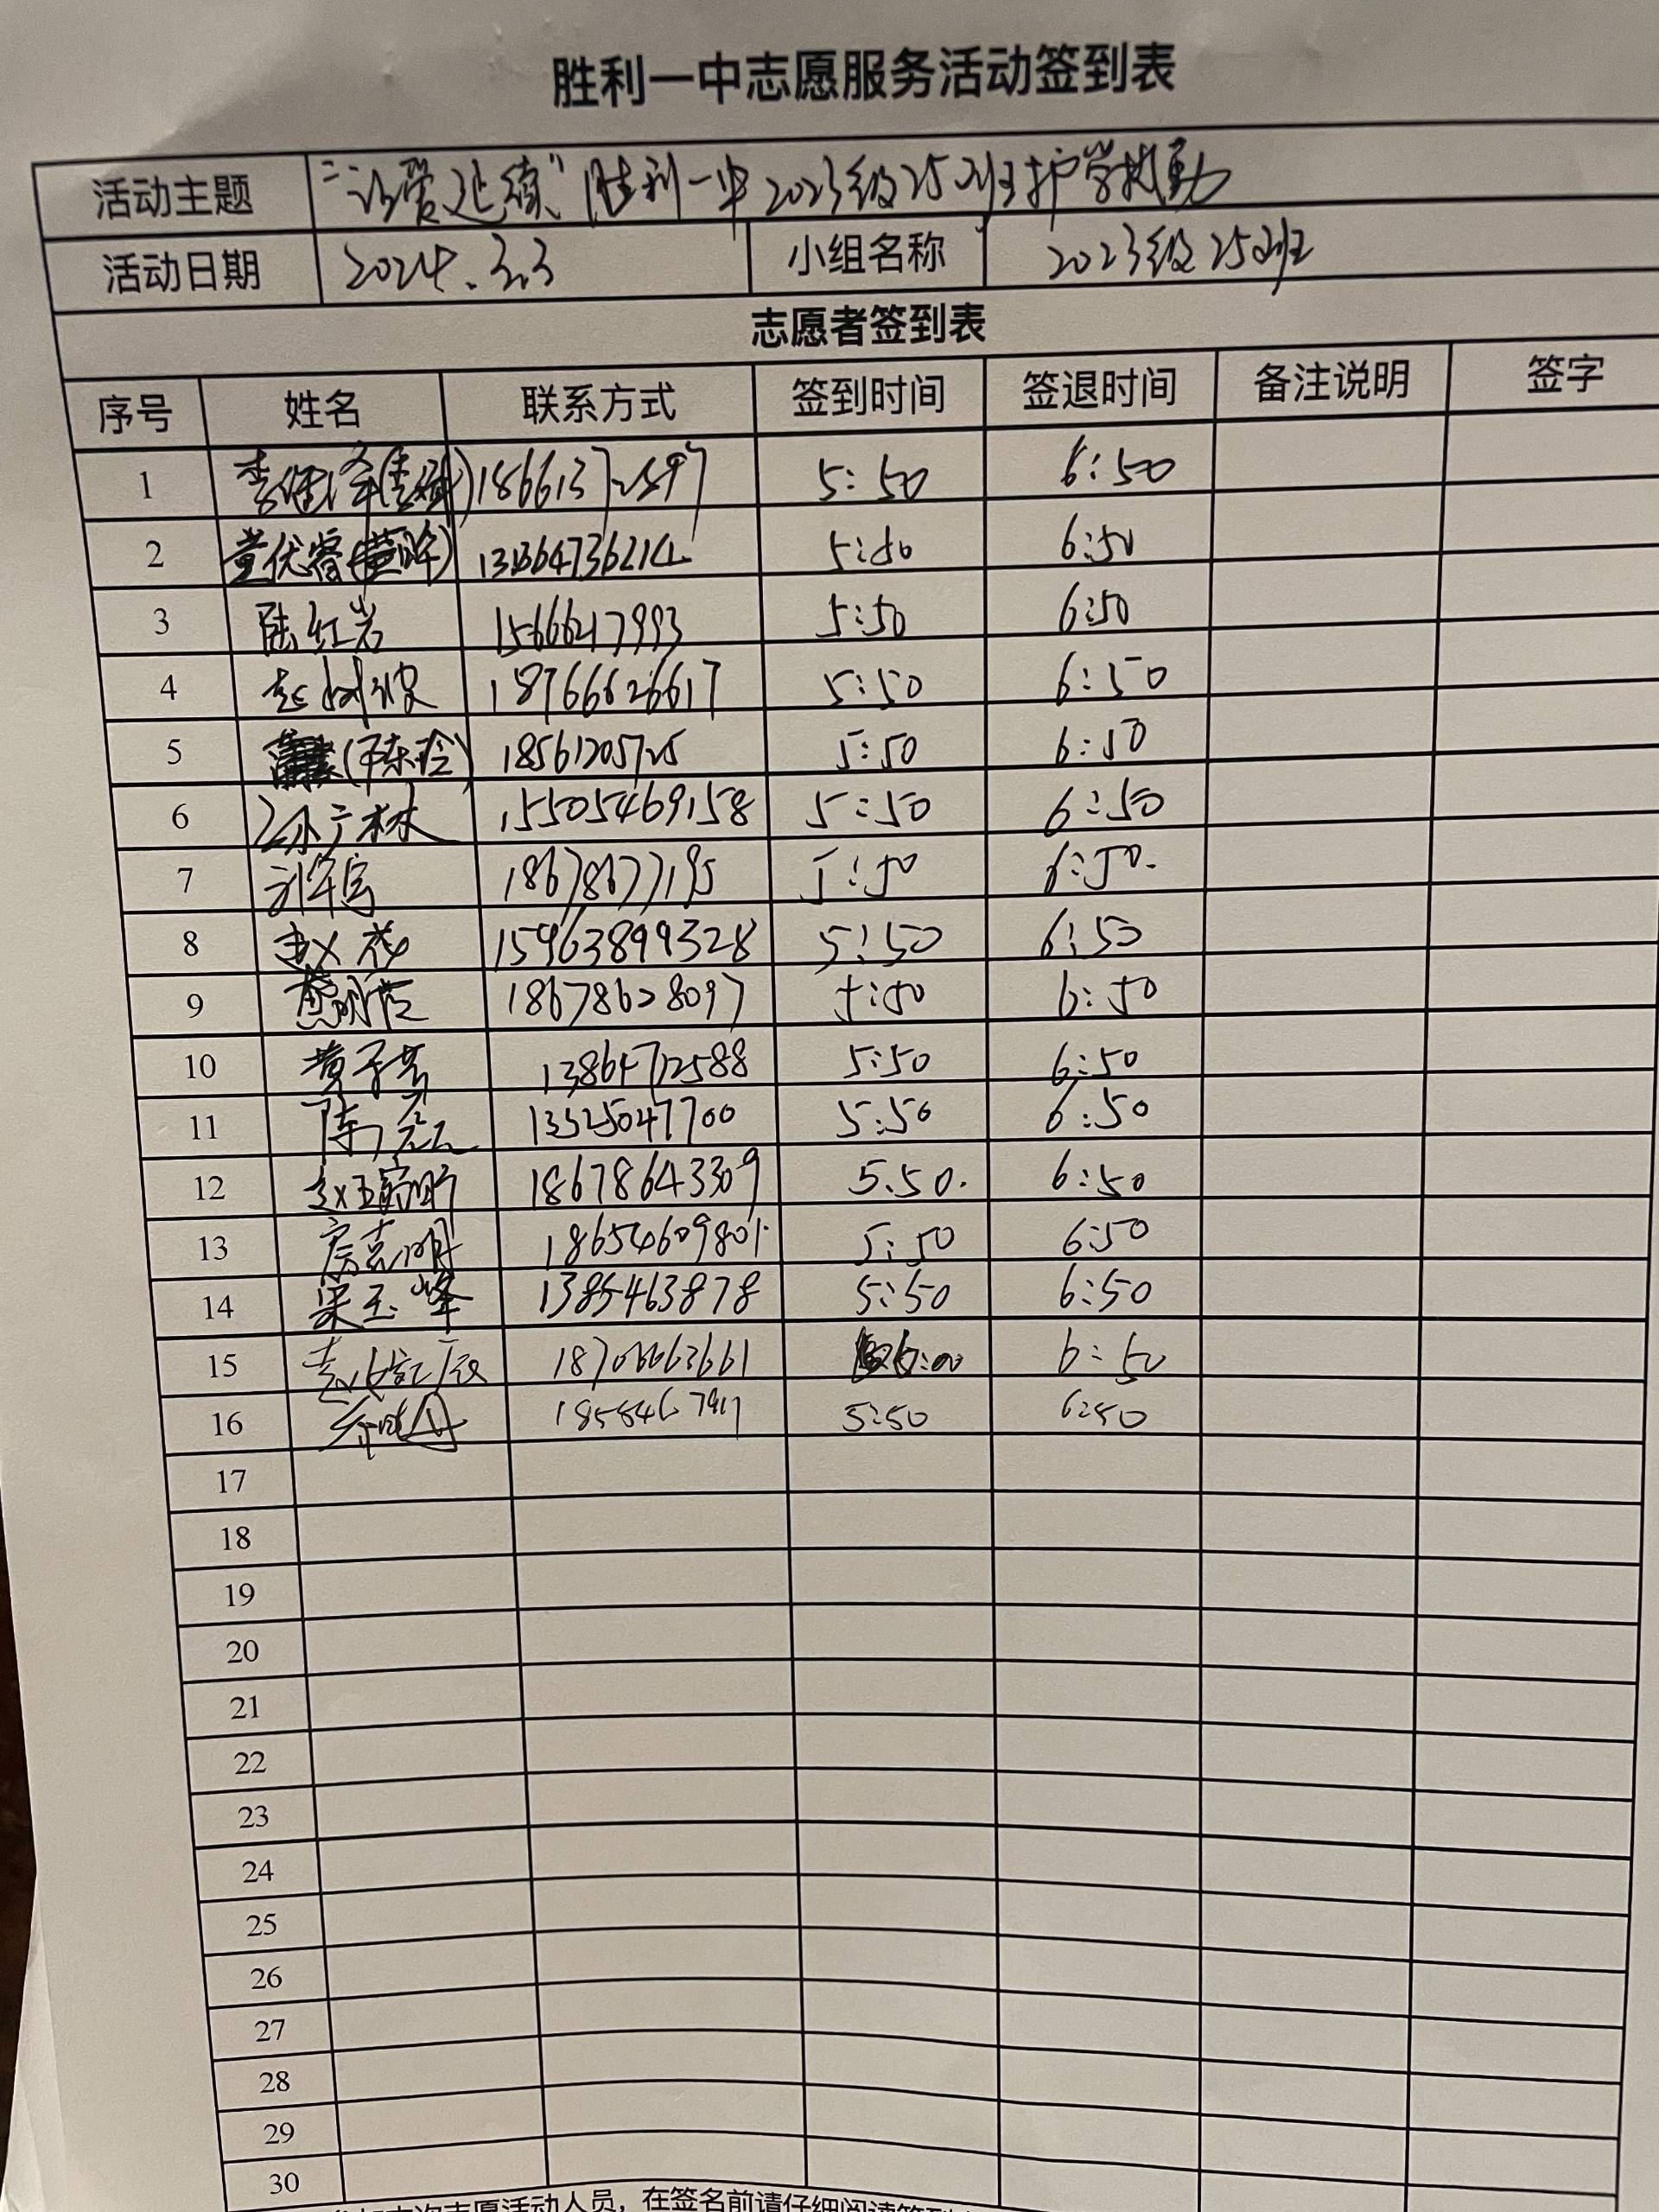 胜利一中志愿服务活动签到表
活动主题 "让爱延续"胜利一中2023级25班护学执勤
活动日期 2024.3.3 小组名称 2023级25班
志愿者签到表
序号 姓名 联系方式 签到时间 签退时间 备注说明 签字
1 18661372597 5:50 6:50
2 5:50 6:50
3 陆红岩 15666217993 5:50 6:50
4 赵树波 18766626617 5:50 6:50
5 (陈玲) 18561205725 5:50 6:50
6 孙广林 15505469158 5:50 6:50
7 刘军富 18678677195 5:50 6:50.
8 赵花 15963899328 5:50 6:50
9 18678628097 5:50 6:50
10 黄子芸 13864712588 5:50 6:50
11 陈广宏 13325047700 5:50 6:50
12 18678643309 5.50. 6:50
13 房克明 18654609801 5:50 6:50
14 梁玉峰 1385463878 5:50 6:50
15 18706663661 6:00 6:50
16 5:50 6:50
17
18
19
20
21
22
23
24
25
26
27
28
29
30
参加本次志愿活动人员，在签名前请仔细阅读签到